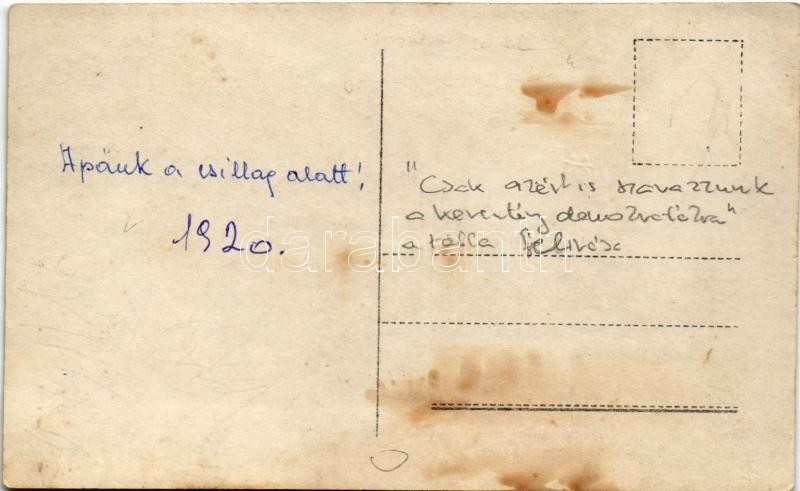 Apánk a csillag alatt!
1920.
"Csak azért is szavazzunk
a keresztény demokratákra"
a tábla felirása
darabanth